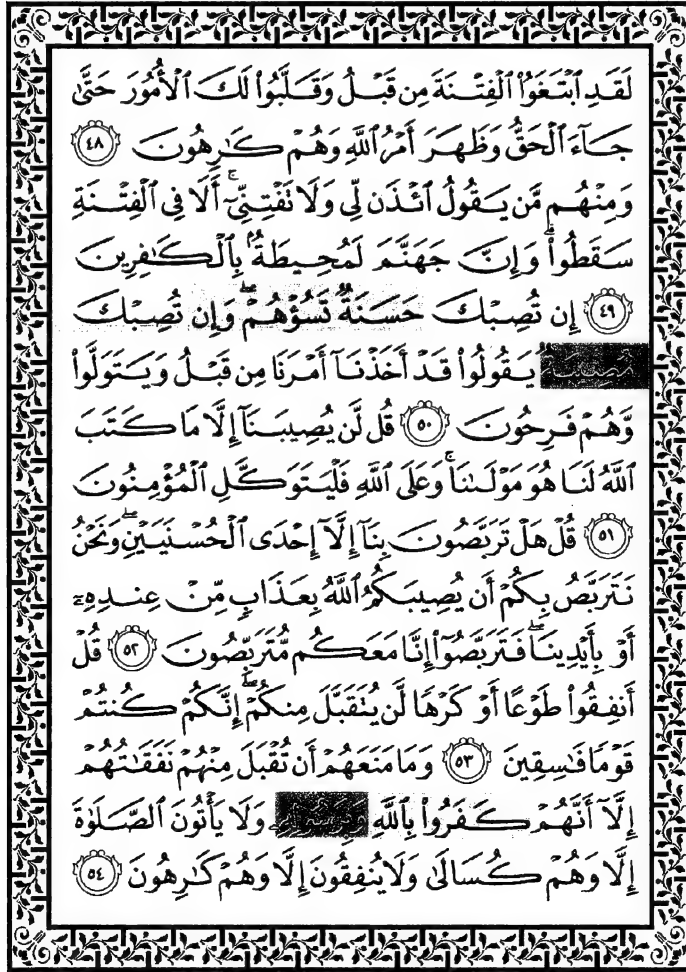 لَقَدِ ٱبْتَغَوُا۟ ٱلْفِتْنَةَ مِن قَبْلُ وَقَلَّبُوا۟ لَكَ ٱلْأُمُورَ حَتَّىٰ
جَآءَ ٱلْحَقُّ وَظَهَرَ أَمْرُ ٱللَّهِ وَهُمْ كَـٰرِهُونَ ٤٨
وَمِنْهُم مَّن يَقُولُ ٱئْذَن لِّى وَلَا تَفْتِنِّىٓ ۚ أَلَا فِى ٱلْفِتْنَةِ
سَقَطُوا۟ ۗ وَإِنَّ جَهَنَّمَ لَمُحِيطَةٌۢ بِٱلْكَـٰفِرِينَ
٤٩ إِن تُصِبْكَ حَسَنَةٌ تَسُؤْهُمْ ۖ وَإِن تُصِبْكَ
مُصِيبَةٌ يَقُولُوا۟ قَدْ أَخَذْنَآ أَمْرَنَا مِن قَبْلُ وَيَتَوَلَّوا۟
وَّهُمْ فَرِحُونَ ٥٠ قُل لَّن يُصِيبَنَآ إِلَّا مَا كَتَبَ
ٱللَّهُ لَنَا هُوَ مَوْلَىٰنَا ۚ وَعَلَى ٱللَّهِ فَلْيَتَوَكَّلِ ٱلْمُؤْمِنُونَ
٥١ قُلْ هَلْ تَرَبَّصُونَ بِنَآ إِلَّآ إِحْدَى ٱلْحُسْنَيَيْنِ ۖ وَنَحْنُ
نَتَرَبَّصُ بِكُمْ أَن يُصِيبَكُمُ ٱللَّهُ بِعَذَابٍ مِّنْ عِندِهِۦٓ
أَوْ بِأَيْدِينَا ۖ فَتَرَبَّصُوٓا۟ إِنَّا مَعَكُم مُّتَرَبِّصُونَ ٥٢ قُلْ
أَنفِقُوا۟ طَوْعًا أَوْ كَرْهًا لَّن يُتَقَبَّلَ مِنكُمْ ۖ إِنَّكُمْ كُنتُمْ
قَوْمًا فَـٰسِقِينَ ٥٣ وَمَا مَنَعَهُمْ أَن تُقْبَلَ مِنْهُمْ نَفَقَـٰتُهُمْ
إِلَّآ أَنَّهُمْ كَفَرُوا۟ بِٱللَّهِ وَلَا يَأْتُونَ ٱلصَّلَوٰةَ
إِلَّا وَهُمْ كُسَالَىٰ وَلَا يُنفِقُونَ إِلَّا وَهُمْ كَـٰرِهُونَ ٥٤